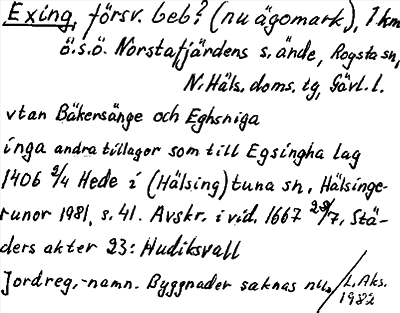 Exing, försv. beb? (nu ägomark), 1 km
ö.s.ö. Norstafjärdens s. ände, Rogsta sn,
N. Häls. doms. tg, Gävl. l.
vtan Bäkersänge och Eghsniga
inga andra tillagor som till Egsingha lag
1406 2/4 Hede i (Hälsing)tuna sn, Hälsinge-
runor 1981, s. 41. Avskr. i vid. 1667 23/7, Stä-
ders akter 23: Hudiksvall
Jordreg.-namn. Byggnader saknas nu.
L. Aks.
1982